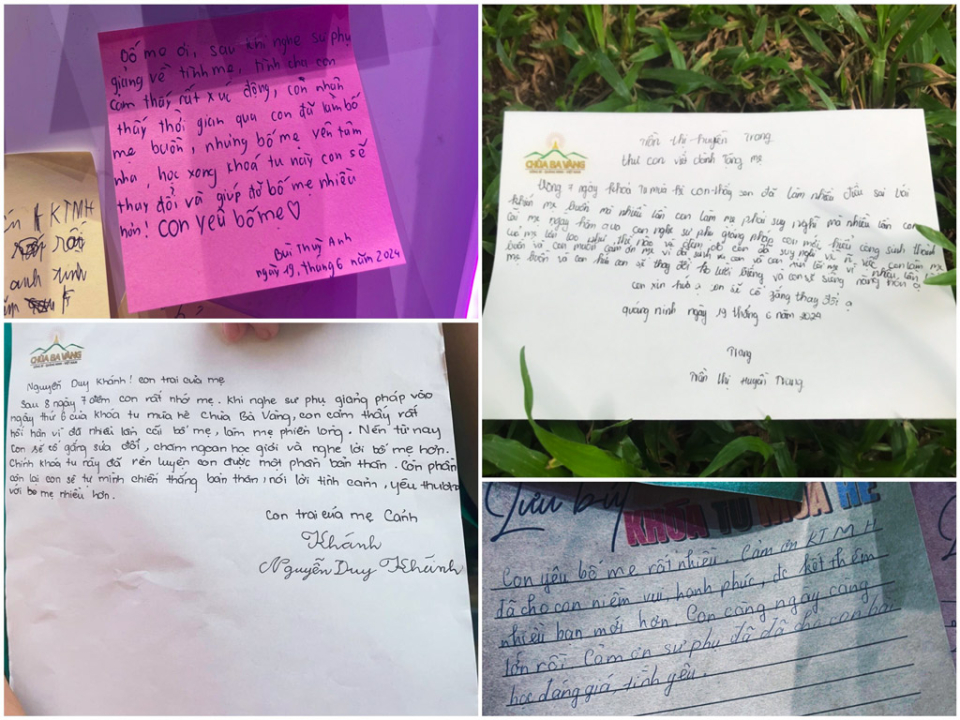 Bố mẹ ơi, sau khi nghe sư phụ
giảng về tình mẹ, tình cha con
cảm thấy rất xúc động, con nhận
thấy thời gian qua con đã làm bố
mẹ buồn, nhưng bố mẹ yên tâm
nha, học xong khoá tu này con sẽ
thay đổi và giúp đỡ bố mẹ nhiều
hơn! con yêu bố mẹ ♡
Bùi Thuỳ Anh
ngày 19, tháng 6 năm 2024
KTMH
rất
anh xinh
CHÙA BA VÀNG
Trần Thị Huyền Trang
thư con viết dành tặng mẹ
7 ngày khoá tu mùa hè con thấy con đã làm nhiều điều sai trái
khiến mẹ buồn mà nhiều lần con làm mẹ phải suy nghĩ mà nhiều lần con
cãi mẹ ngày hôm qua con nghe sư phụ giảng pháp con mới hiểu công sinh thành
của mẹ như thế nào và đêm đó con đã suy nghĩ và con làm mẹ
buồn và con muốn cảm ơn mẹ vì đã sinh ra con và con xin lỗi mẹ vì nhiều lần
mẹ buồn và con hứa con sẽ thay đổi ko lười biếng và con sẽ siêng năng hơn ạ
con xin hứa con sẽ cố gắng thay đổi ạ
quảng ninh ngày 19 tháng 6 năm 2024
Trang
Trần Thị Huyền Trang
CHÙA BA VÀNG
Nguyễn Duy Khánh! con trai của mẹ
Sau 8 ngày 7 đêm con rất nhớ mẹ. Khi nghe sư phụ giảng pháp vào
ngày thứ 6 của khóa tu mùa hè Chùa Ba Vàng, con cảm thấy rất
hối hận vì đã nhiều lần cãi bố mẹ, làm mẹ phiền lòng. Nên từ nay
con sẽ cố gắng sửa đổi, chăm ngoan học giỏi và nghe lời bố mẹ hơn.
Chính khóa tu này đã rèn luyện con được một phần bản thân. Còn phần
còn lại con sẽ tự mình chiến thắng bản thân, nói lời tình cảm, yêu thương
với bố mẹ nhiều hơn.
con trai của mẹ Cảnh
Khánh
Nguyễn Duy Khánh
Lưu bút
KHÓA TU MÙA HÈ
Con yêu bố mẹ rất nhiều. Cảm ơn KTMH
đã cho con niềm vui, hạnh phúc, đc kết thêm
nhiều bạn mới hơn. Con càng ngày càng
lớn rồi. Cảm ơn sư phụ đã đã cho con bài
học đáng giá, tình yêu.